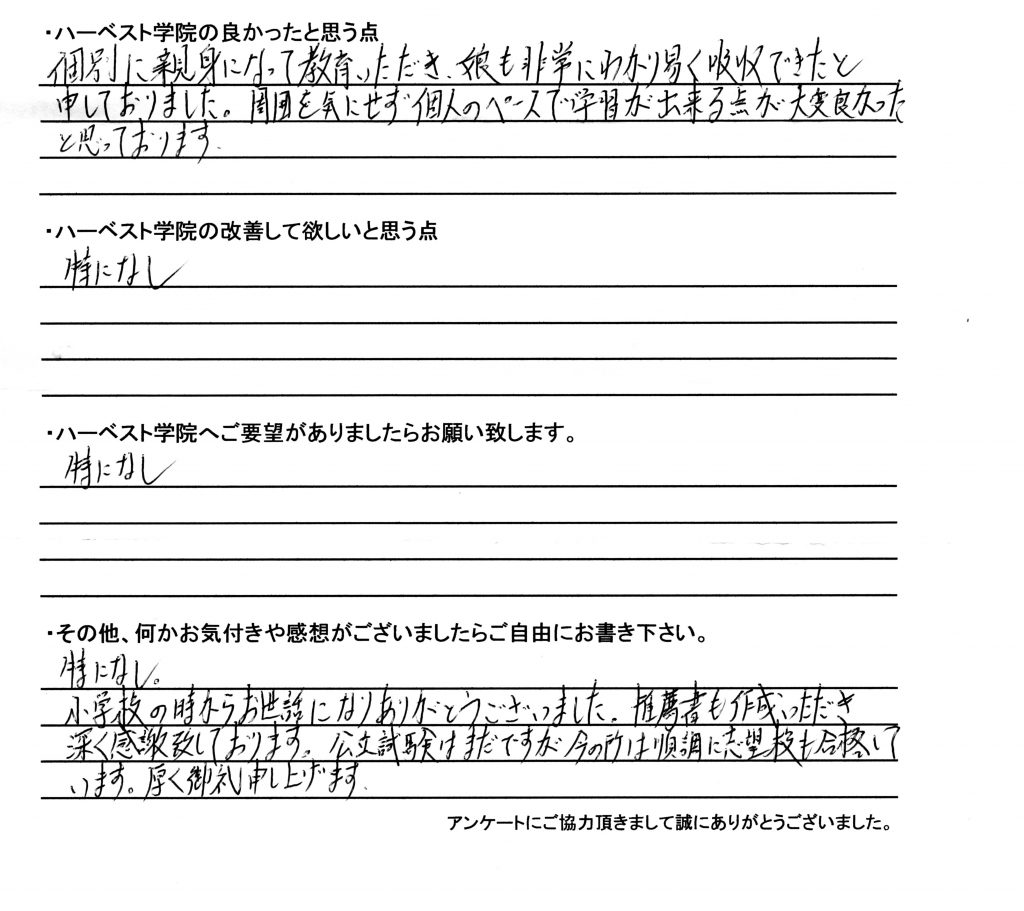 ・ハーベスト学院の良かったと思う点
個別に親身になって教育いただき、娘も非学にわかり易く吸収できたと
申しておりました。周囲を気にせず個人のペースで学習が出来る点が大変良かった
と思っております。
・ハーベスト学院の改善して欲しいと思う点
特になし
・ハーベスト学院へご要望がありましたらお願い致します。
特になし
・その他、何かお気付きや感想がございましたらご自由にお書き下さい。
特になし。
小学校の時からお世話になりありがとうございました。推薦書も作成いただき
深く感謝致しております。公立試験はまだですが今の所は順調に志望校も合格して
います。厚く御礼申し上げます。
アンケートにご協力頂きまして誠にありがとうございました。